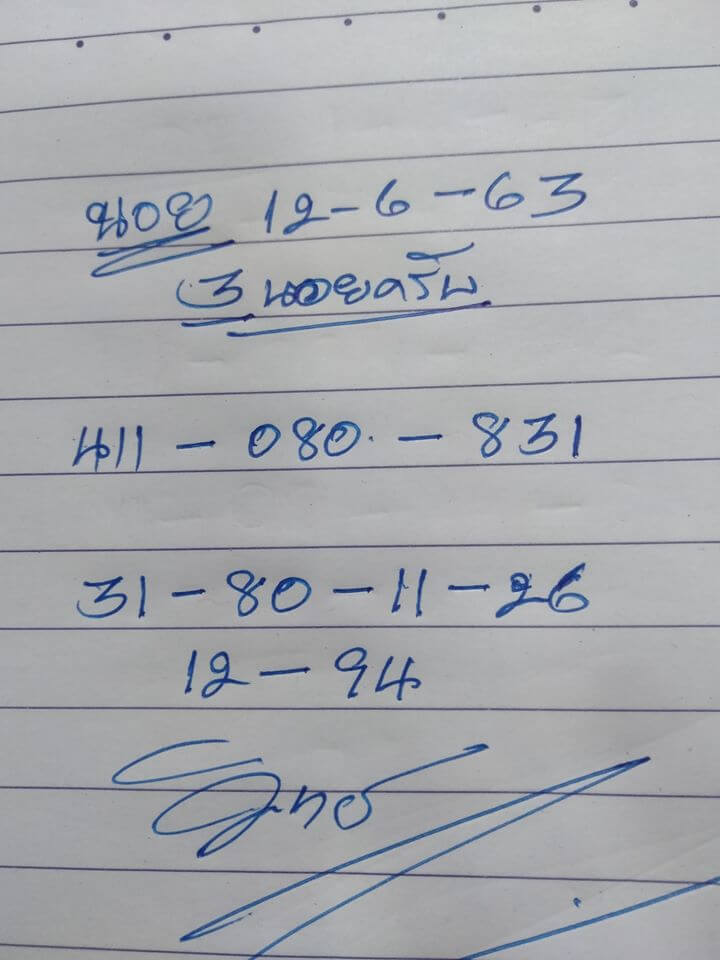 นอย 12-6-63
3 นอยครับ
411 - 080 - 831
31 - 80 - 11 - 26
12 - 94